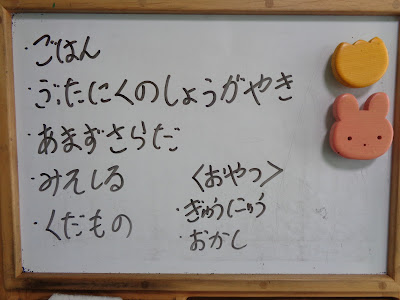 ・ごはん
・ぶたにくのしょうがやき
・あまずさらだ
・みそしる
・くだもの
〈おやつ〉
・ぎゅうにゅう
・おかし